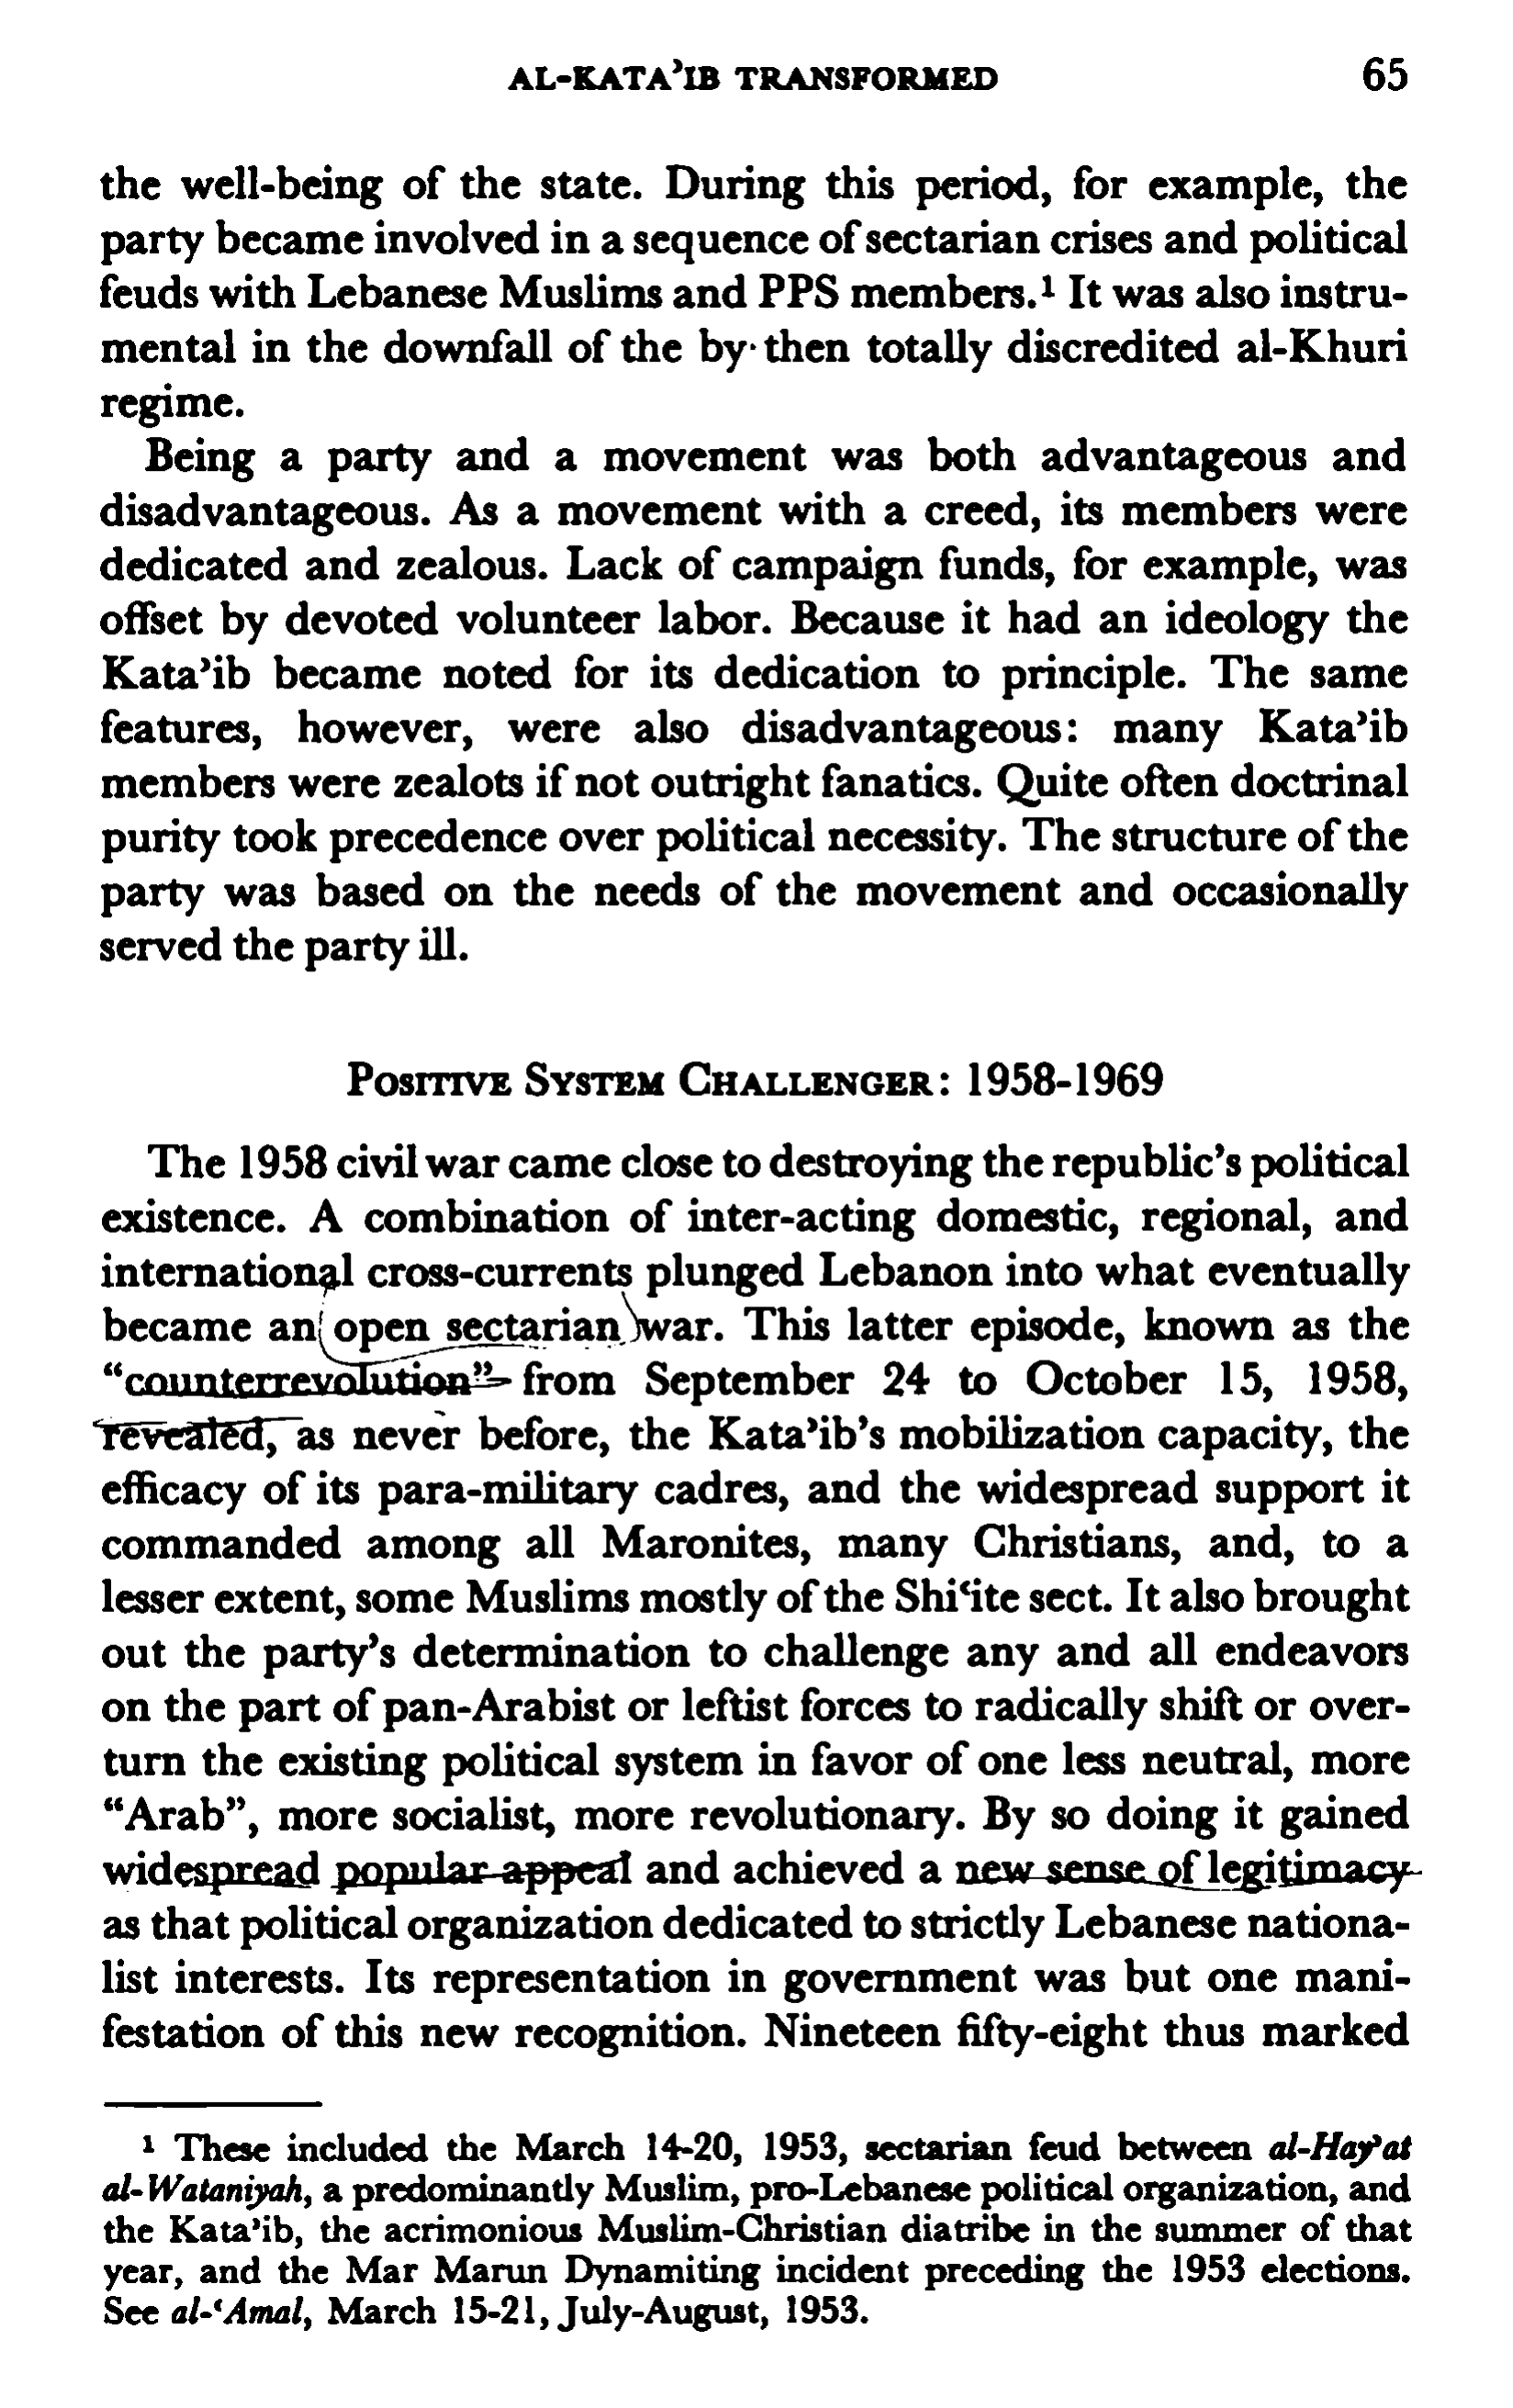 AL-KATA’IB TRANSFORMED 65
the well-being of the state. During this period, for example, the
party became involved in a sequence of sectarian crises and political
feuds with Lebanese Muslims and PPS members.¹ It was also instru-
mental in the downfall of the by·then totally discredited al-Khuri
regime.
Being a party and a movement was both advantageous and
disadvantageous. As a movement with a creed, its members were
dedicated and zealous. Lack of campaign funds, for example, was
offset by devoted volunteer labor. Because it had an ideology the
Kata’ib became noted for its dedication to principle. The same
features, however, were also disadvantageous: many Kata’ib
members were zealots if not outright fanatics. Quite often doctrinal
purity took precedence over political necessity. The structure of the
party was based on the needs of the movement and occasionally
served the party ill.
POSITIVE SYSTEM CHALLENGER: 1958-1969
The 1958 civil war came close to destroying the republic’s political
existence. A combination of inter-acting domestic, regional, and
international cross-currents plunged Lebanon into what eventually
became an open sectarian war. This latter episode, known as the
“counterrevolution” from September 24 to October 15, 1958,
revealed, as never before, the Kata’ib’s mobilization capacity, the
efficacy of its para-military cadres, and the widespread support it
commanded among all Maronites, many Christians, and, to a
lesser extent, some Muslims mostly of the Shi‘ite sect. It also brought
out the party’s determination to challenge any and all endeavors
on the part of pan-Arabist or leftist forces to radically shift or over-
turn the existing political system in favor of one less neutral, more
“Arab”, more socialist, more revolutionary. By so doing it gained
widespread popular appeal and achieved a new sense of legitimacy
as that political organization dedicated to strictly Lebanese nationa-
list interests. Its representation in government was but one mani-
festation of this new recognition. Nineteen fifty-eight thus marked
¹ These included the March 14-20, 1953, sectarian feud between al-Hay’at
al-Wataniyah, a predominantly Muslim, pro-Lebanese political organization, and
the Kata’ib, the acrimonious Muslim-Christian diatribe in the summer of that
year, and the Mar Marun Dynamiting incident preceding the 1953 elections.
See al-‘Amal, March 15-21, July-August, 1953.